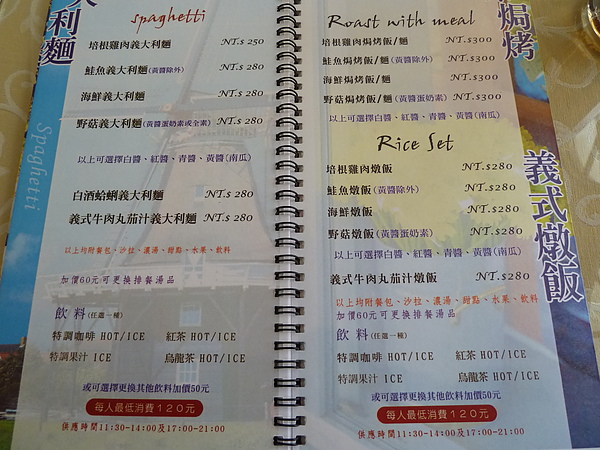 大利麵
spaghetti
Spaghetti
培根雞肉義大利麵 NT.$ 250
鮭魚義大利麵(黃醬除外) NT.$ 280
海鮮義大利麵 NT.$ 280
野菇義大利麵(黃醬蛋奶素或全素) NT.$ 280
以上可選擇白醬、紅醬、青醬、黃醬(南瓜)
白酒蛤蜊義大利麵 NT.$ 280
義式牛肉丸茄汁義大利麵 NT.$ 280
以上均附餐包、沙拉、濃湯、甜點、水果、飲料
加價60元可更換排餐湯品
飲 料(任選一種)
特調咖啡 HOT/ICE 紅茶 HOT/ICE
特調果汁 ICE 烏龍茶 HOT/ICE
或可選擇更換其他飲料加價50元
每人最低消費120元
供應時間11:30-14:00及17:00-21:00
焗烤
Roast with meal
培根雞肉焗烤飯/麵 NT.$300
鮭魚焗烤飯/麵(黃醬除外) NT.$300
海鮮焗烤飯/麵 NT.$300
野菇焗烤飯/麵(黃醬蛋奶素) NT.$300
以上可選擇白醬、紅醬、青醬、黃醬(南瓜)
義式燉飯
Rice Set
培根雞肉燉飯 NT.$280
鮭魚燉飯(黃醬除外) NT.$280
海鮮燉飯 NT.$280
野菇燉飯(黃醬蛋奶素) NT.$280
以上可選擇白醬、紅醬、青醬、黃醬(南瓜)
義式牛肉丸茄汁燉飯 NT.$280
以上均附餐包、沙拉、濃湯、甜點、水果、飲料
加價60元可更換排餐湯品
飲 料(任選一種)
特調咖啡 HOT/ICE 紅茶 HOT/ICE
特調果汁 ICE 烏龍茶 HOT/ICE
或可選擇更換其他飲料加價50元
每人最低消費120元
供應時間11:30-14:00及17:00-21:00